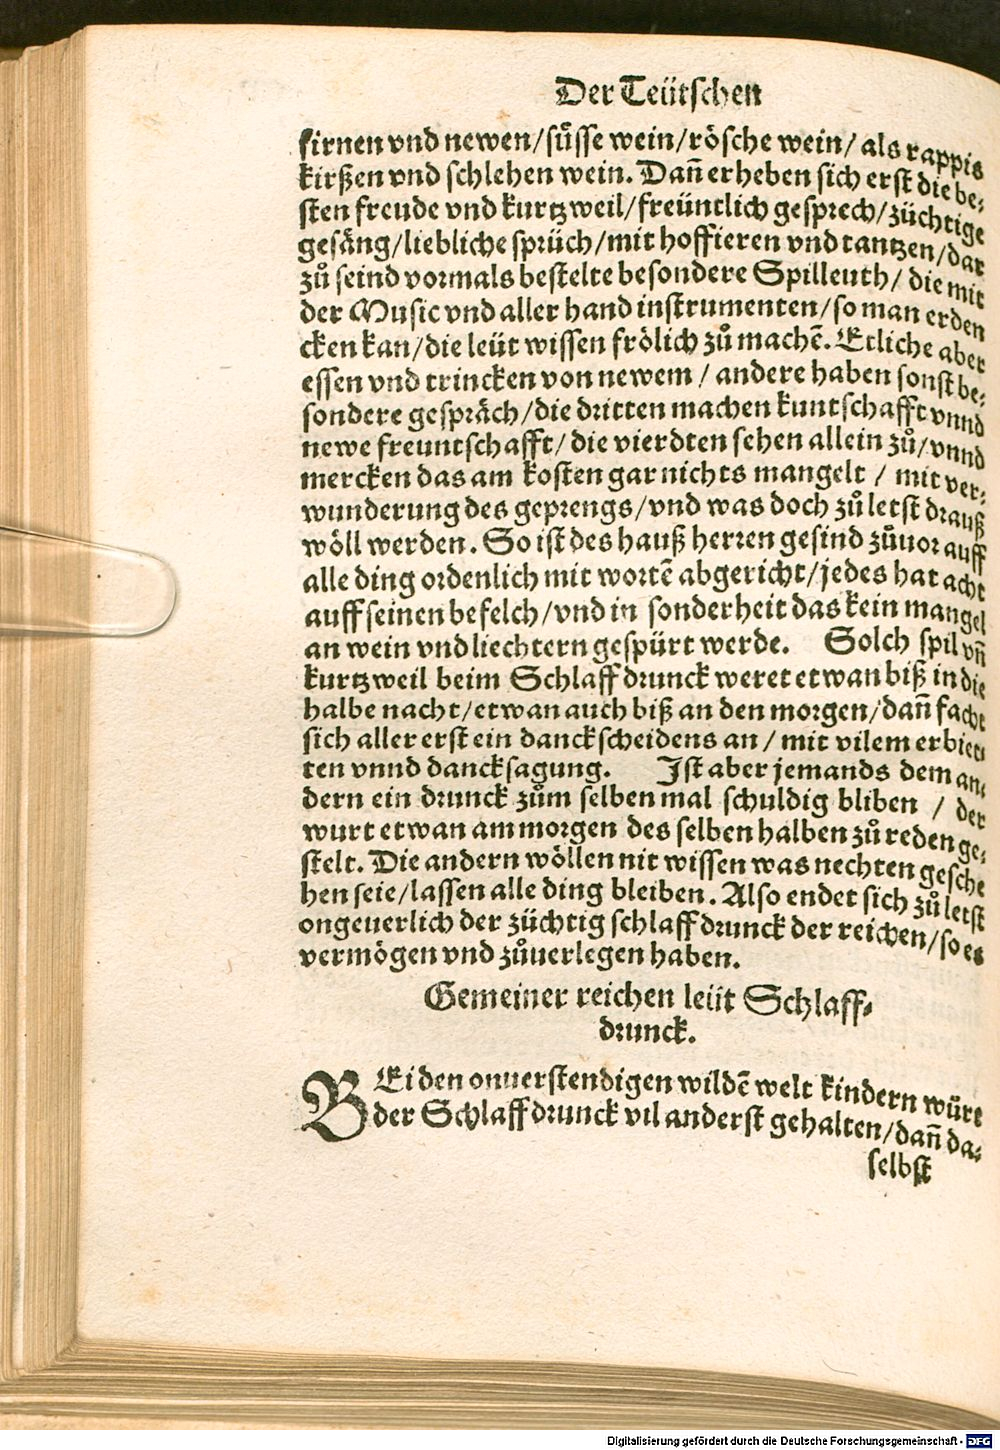 Der Teütschen
firnen vnd newen/süsse wein/rösche wein/ als rappis
kirßen vnd schlehen wein. Dañ erheben sich erst die be⸗
sten freude vnd kurtzweil/freüntlich gesprech/züchtige
gesäng/liebliche sprüch/mit hoffieren vnd tantzen/dar
zů seind vormals bestelte besondere Spilleuth/ die mit
der Music vnd aller hand instrumenten/so man erden
cken kan/die leüt wissen frölich zů machē. Etliche aber
essen vnd trincken von newem / andere haben sonst be⸗
sondere gespräch/die dritten machen kuntschafft vnnd
newe freuntschafft/ die vierdten sehen allein zů/vnnd
mercken das am kosten gar nichts mangelt / mit ver⸗
wunderung des geprengs/vnd was doch zů letst drauß
wöll werden. So ist des hauß herren gesind zůuor auff
alle ding ordenlich mit wortē abgericht/jedes hat acht
auff seinen befelch/vnd in sonderheit das kein mangel
an wein vnd liechtern gespürt werde. Solch spil vñ
kurtzweil beim Schlaffdrunck weret etwan biß in die
halbe nacht/etwan auch biß an den morgen/dañ facht
sich aller erst ein danckscheidens an / mit vilem erbiet⸗
ten vnnd dancksagung. Ist aber jemands dem an⸗
dern ein drunck zům selben mal schuldig bliben / der
wurt etwan am morgen des selben halben zů reden ge⸗
stelt. Die andern wöllen nit wissen was nechten gesche
hen seie/lassen alle ding bleiben. Also endet sich zů letst
ongeuerlich der züchtig schlaffdrunck der reichen/so es
vermögen vnd zůuerlegen haben.
Gemeiner reichen leüt Schlaff⸗
drunck.
BEi den onuerstendigen wildē welt kindern würt
der Schlaffdrunck vil anderst gehalten/dañ da⸗
selbst
Digitalisierung gefördert durch die Deutsche Forschungsgemeinschaft - DFG